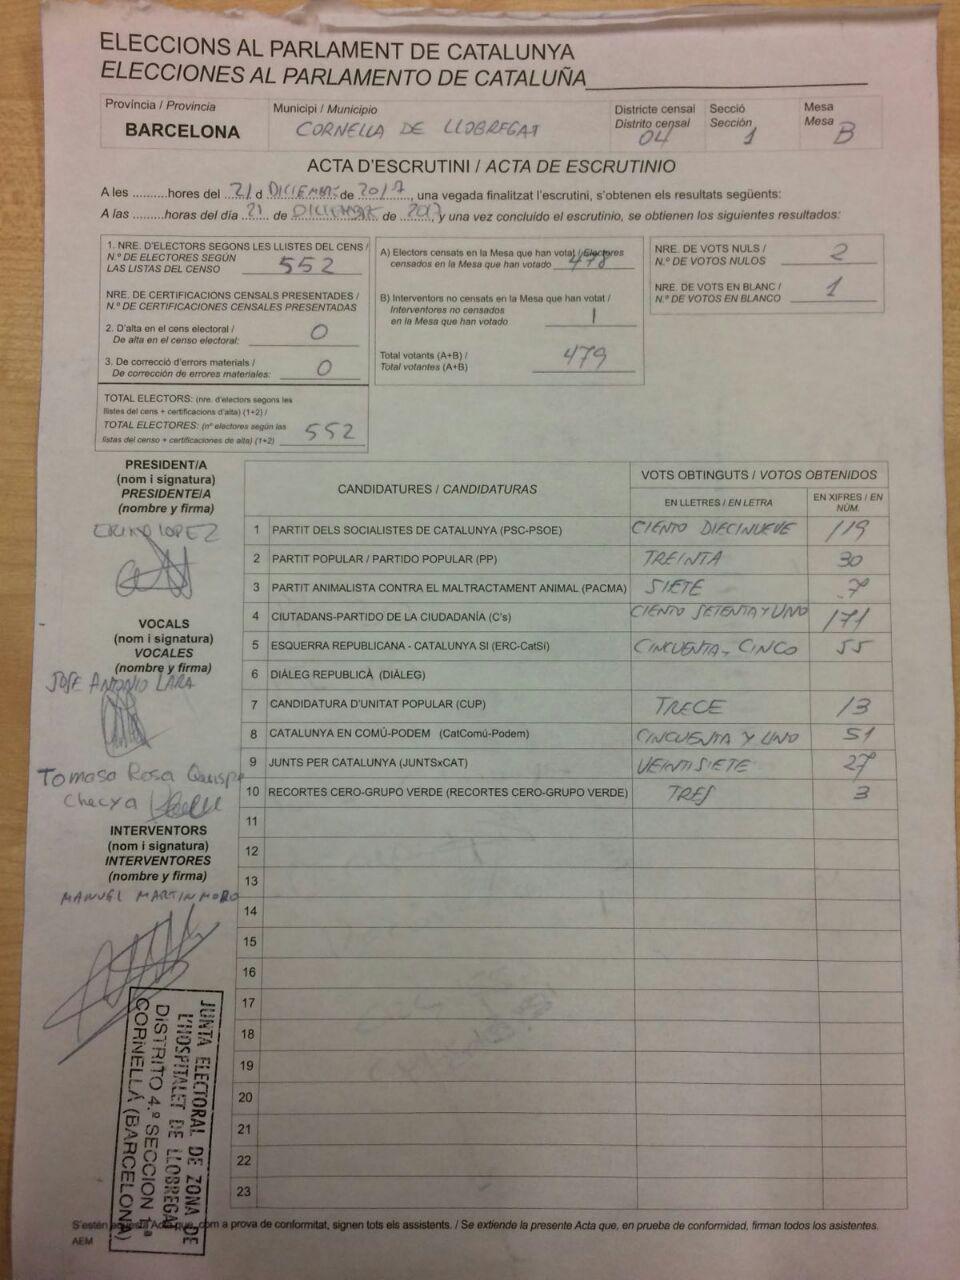 ELECCIONS AL PARLAMENT DE CATALUNYA
ELECCIONES AL PARLAMENTO DE CATALUÑA
Província / Provincia
BARCELONA
Municipi / Municipio
CORNELLA DE LLOBREGAT
Districte censal
Distrito censal
04
Secció
Sección
1
Mesa
Mesa
B
ACTA D'ESCRUTINI / ACTA DE ESCRUTINIO
A les ..........hores del 21 d DICIEMBRE de 2017, una vegada finalitzat l'escrutini, s'obtenen els resultats següents:
A las ..........horas del día 21 de DICIEMBRE de 2017, y una vez concluido el escrutinio, se obtienen los siguientes resultados:
1. NRE. D'ELECTORS SEGONS LES LLISTES DEL CENS /
N.º DE ELECTORES SEGÚN
LAS LISTAS DEL CENSO 552
NRE. DE CERTIFICACIONS CENSALS PRESENTADES /
N.º DE CERTIFICACIONES CENSALES PRESENTADAS
2. D'alta en el cens electoral /
De alta en el censo electoral: 0
3. De correcció d'errors materials /
De corrección de errores materiales: 0
TOTAL ELECTORS: (nre. d'electors segons les
llistes del cens + certificacions d'alta) (1+2) /
TOTAL ELECTORES: (nº electores según las
listas del censo + certificaciones de alta) (1+2) 552
A) Electors censats en la Mesa que han votat / Electores
censados en la Mesa que han votado 478
B) Interventors no censats en la Mesa que han votat /
Interventores no censados
en la Mesa que han votado 1
Total votants (A+B) /
Total votantes (A+B) 479
NRE. DE VOTS NULS /
N.º DE VOTOS NULOS 2
NRE. DE VOTS EN BLANC /
N.º DE VOTOS EN BLANCO 1
PRESIDENT/A
(nom i signatura)
PRESIDENTE/A
(nombre y firma)
LOPEZ
VOCALS
(nom i signatura)
VOCALES
(nombre y firma)
JOSE ANTONIO LARA
Tomasa Rosa Quispe
Checya
INTERVENTORS
(nom i signatura)
INTERVENTORES
(nombre y firma)
MANUEL MARTIN MORO
CANDIDATURES / CANDIDATURAS
VOTS OBTINGUTS / VOTOS OBTENIDOS
EN LLETRES / EN LETRA
EN XIFRES / EN NÚM.
1 PARTIT DELS SOCIALISTES DE CATALUNYA (PSC-PSOE) CIENTO DIECINUEVE 119
2 PARTIT POPULAR / PARTIDO POPULAR (PP) TREINTA 30
3 PARTIT ANIMALISTA CONTRA EL MALTRACTAMENT ANIMAL (PACMA) SIETE 7
4 CIUTADANS-PARTIDO DE LA CIUDADANÍA (C's) CIENTO SETENTA Y UNO 171
5 ESQUERRA REPUBLICANA - CATALUNYA SI (ERC-CatSí) CINCUENTA Y CINCO 55
6 DIÀLEG REPUBLICÀ (DIÀLEG)
7 CANDIDATURA D'UNITAT POPULAR (CUP) TRECE 13
8 CATALUNYA EN COMÚ-PODEM (CatComú-Podem) CINCUENTA Y UNO 51
9 JUNTS PER CATALUNYA (JUNTSxCAT) VEINTISIETE 27
10 RECORTES CERO-GRUPO VERDE (RECORTES CERO-GRUPO VERDE) TRES 3
11
12
13
14
15
16
17
18
19
20
21
22
23
JUNTA ELECTORAL DE ZONA DE
L'HOSPITALET DE LLOBREGAT
DISTRITO 4.º SECCION 1.ª
CORNELLÁ (BARCELONA)
S'estén aquesta Acta que, com a prova de conformitat, signen tots els assistents. / Se extiende la presente Acta que, en prueba de conformidad, firman todos los asistentes.
AEM